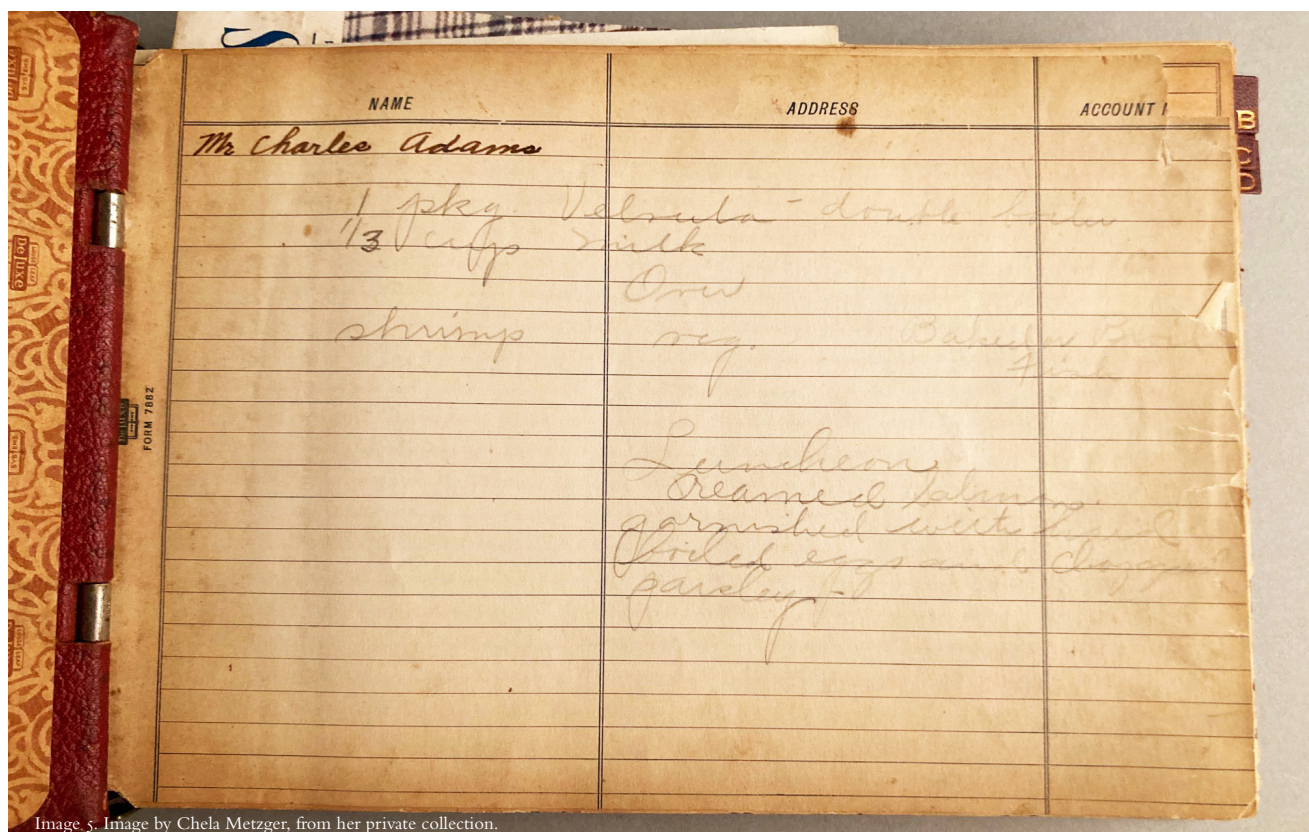 NAME ADDRESS ACCOUNT
Mr Charles Adams
1 pkg Velveeta - double boiler
1/3 cup milk
Over
shrimp veg. Baked or
Fish
Luncheon
Creamed Salmon
garnished with hard
boiled eggs and chopped
parsley -
FORM 7882
DeLuxe
B
C
D
Image 5. Image by Chela Metzger, from her private collection.